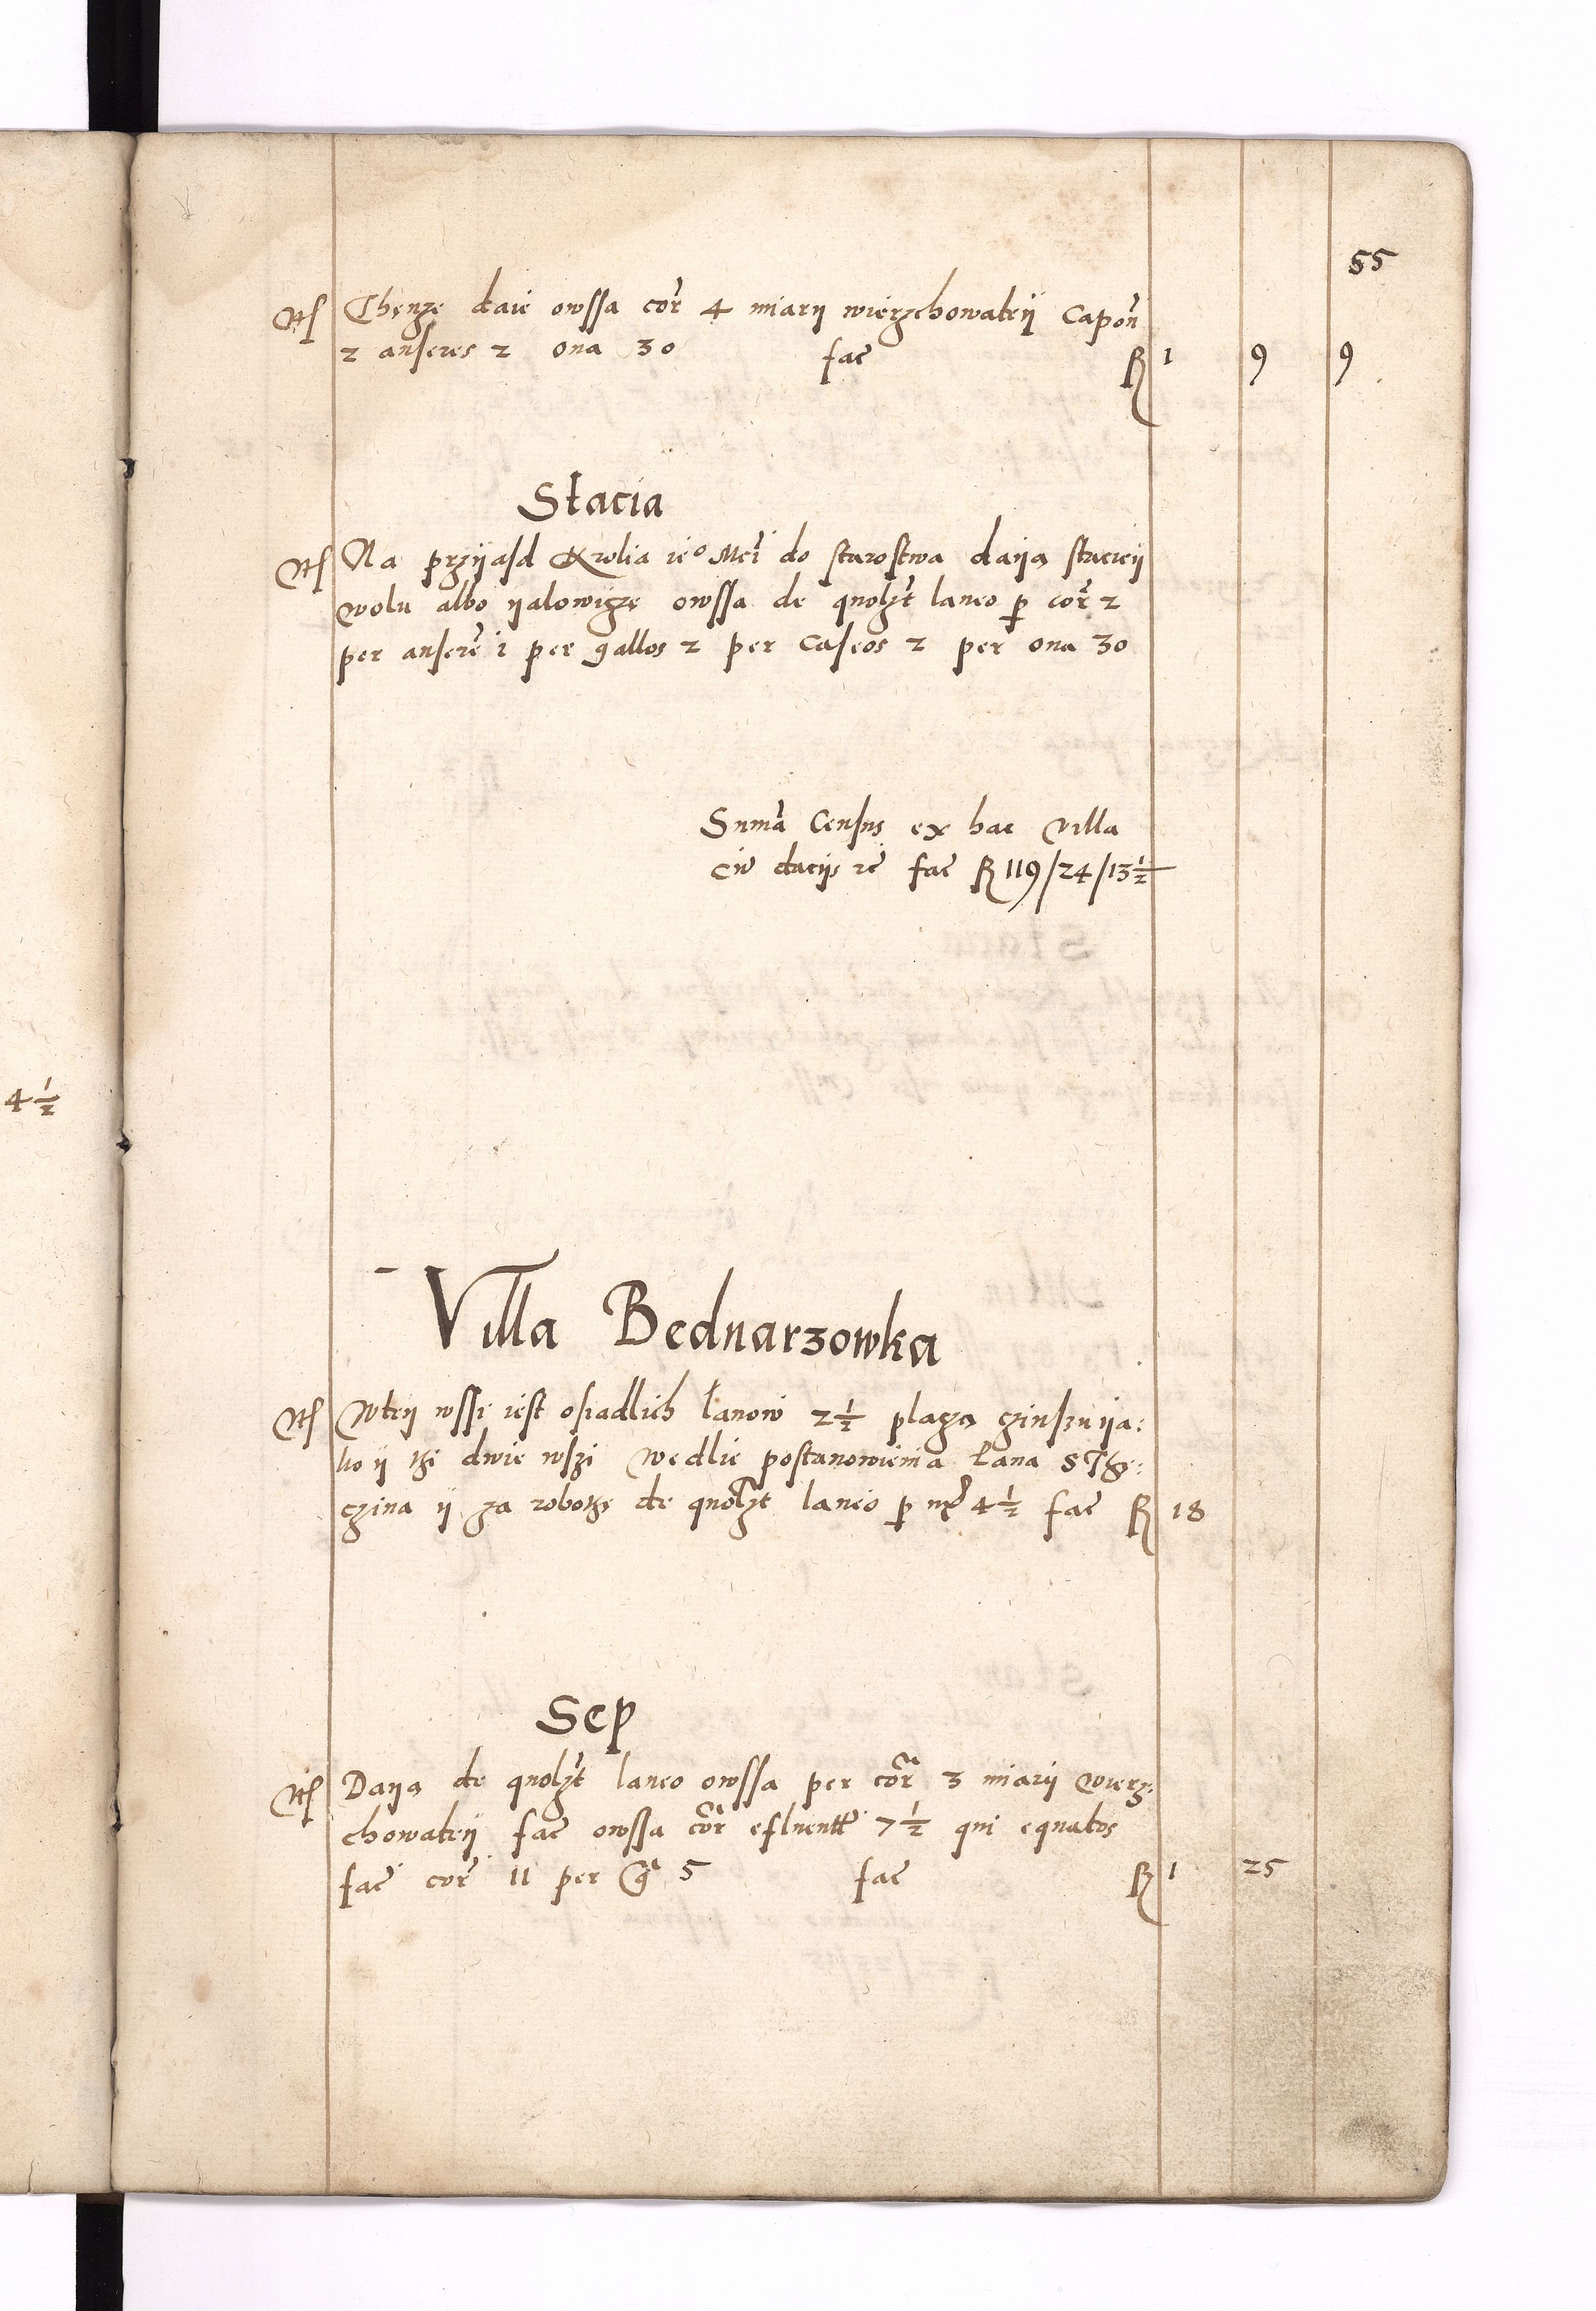 55
Chęnze daie owssa cor̃ 4 miarij wierzchowateij Capoñ
2 anseres 2 oua 30 fac̃ R 1 9 9
Stacia
Na przijasd Krolia ieº Mči do starostwa daija stacieij
wolu albo ijalowiczę owssa de quolzt laneo p cor̃ 2
per anserẽ 1 per gallos 2 per Caseos 2 per oua 30
Sum̃a Census ex hac villa
cũ dacijs rc̃ fac̃ R 119/24/13½
4½
Villa Bednarzowka
Wteij wssi iest osiadlich łanow 2½ placza czinszu ija:
ko ij tzi dwie wszi wedlie postanowienia łana
czina ij za robotzę de quolzt laneo p mr̃ 4½ fac̃ R 18
Sep
Daija de quolzt laneo owssa per cor̃ 3 miarij wierz:
chowateij fac̃ owssa cor̃ efluent 7½ qui equatos
fac̃ cor̃ 11 per gr̃ 5 fac̃ R 1 25